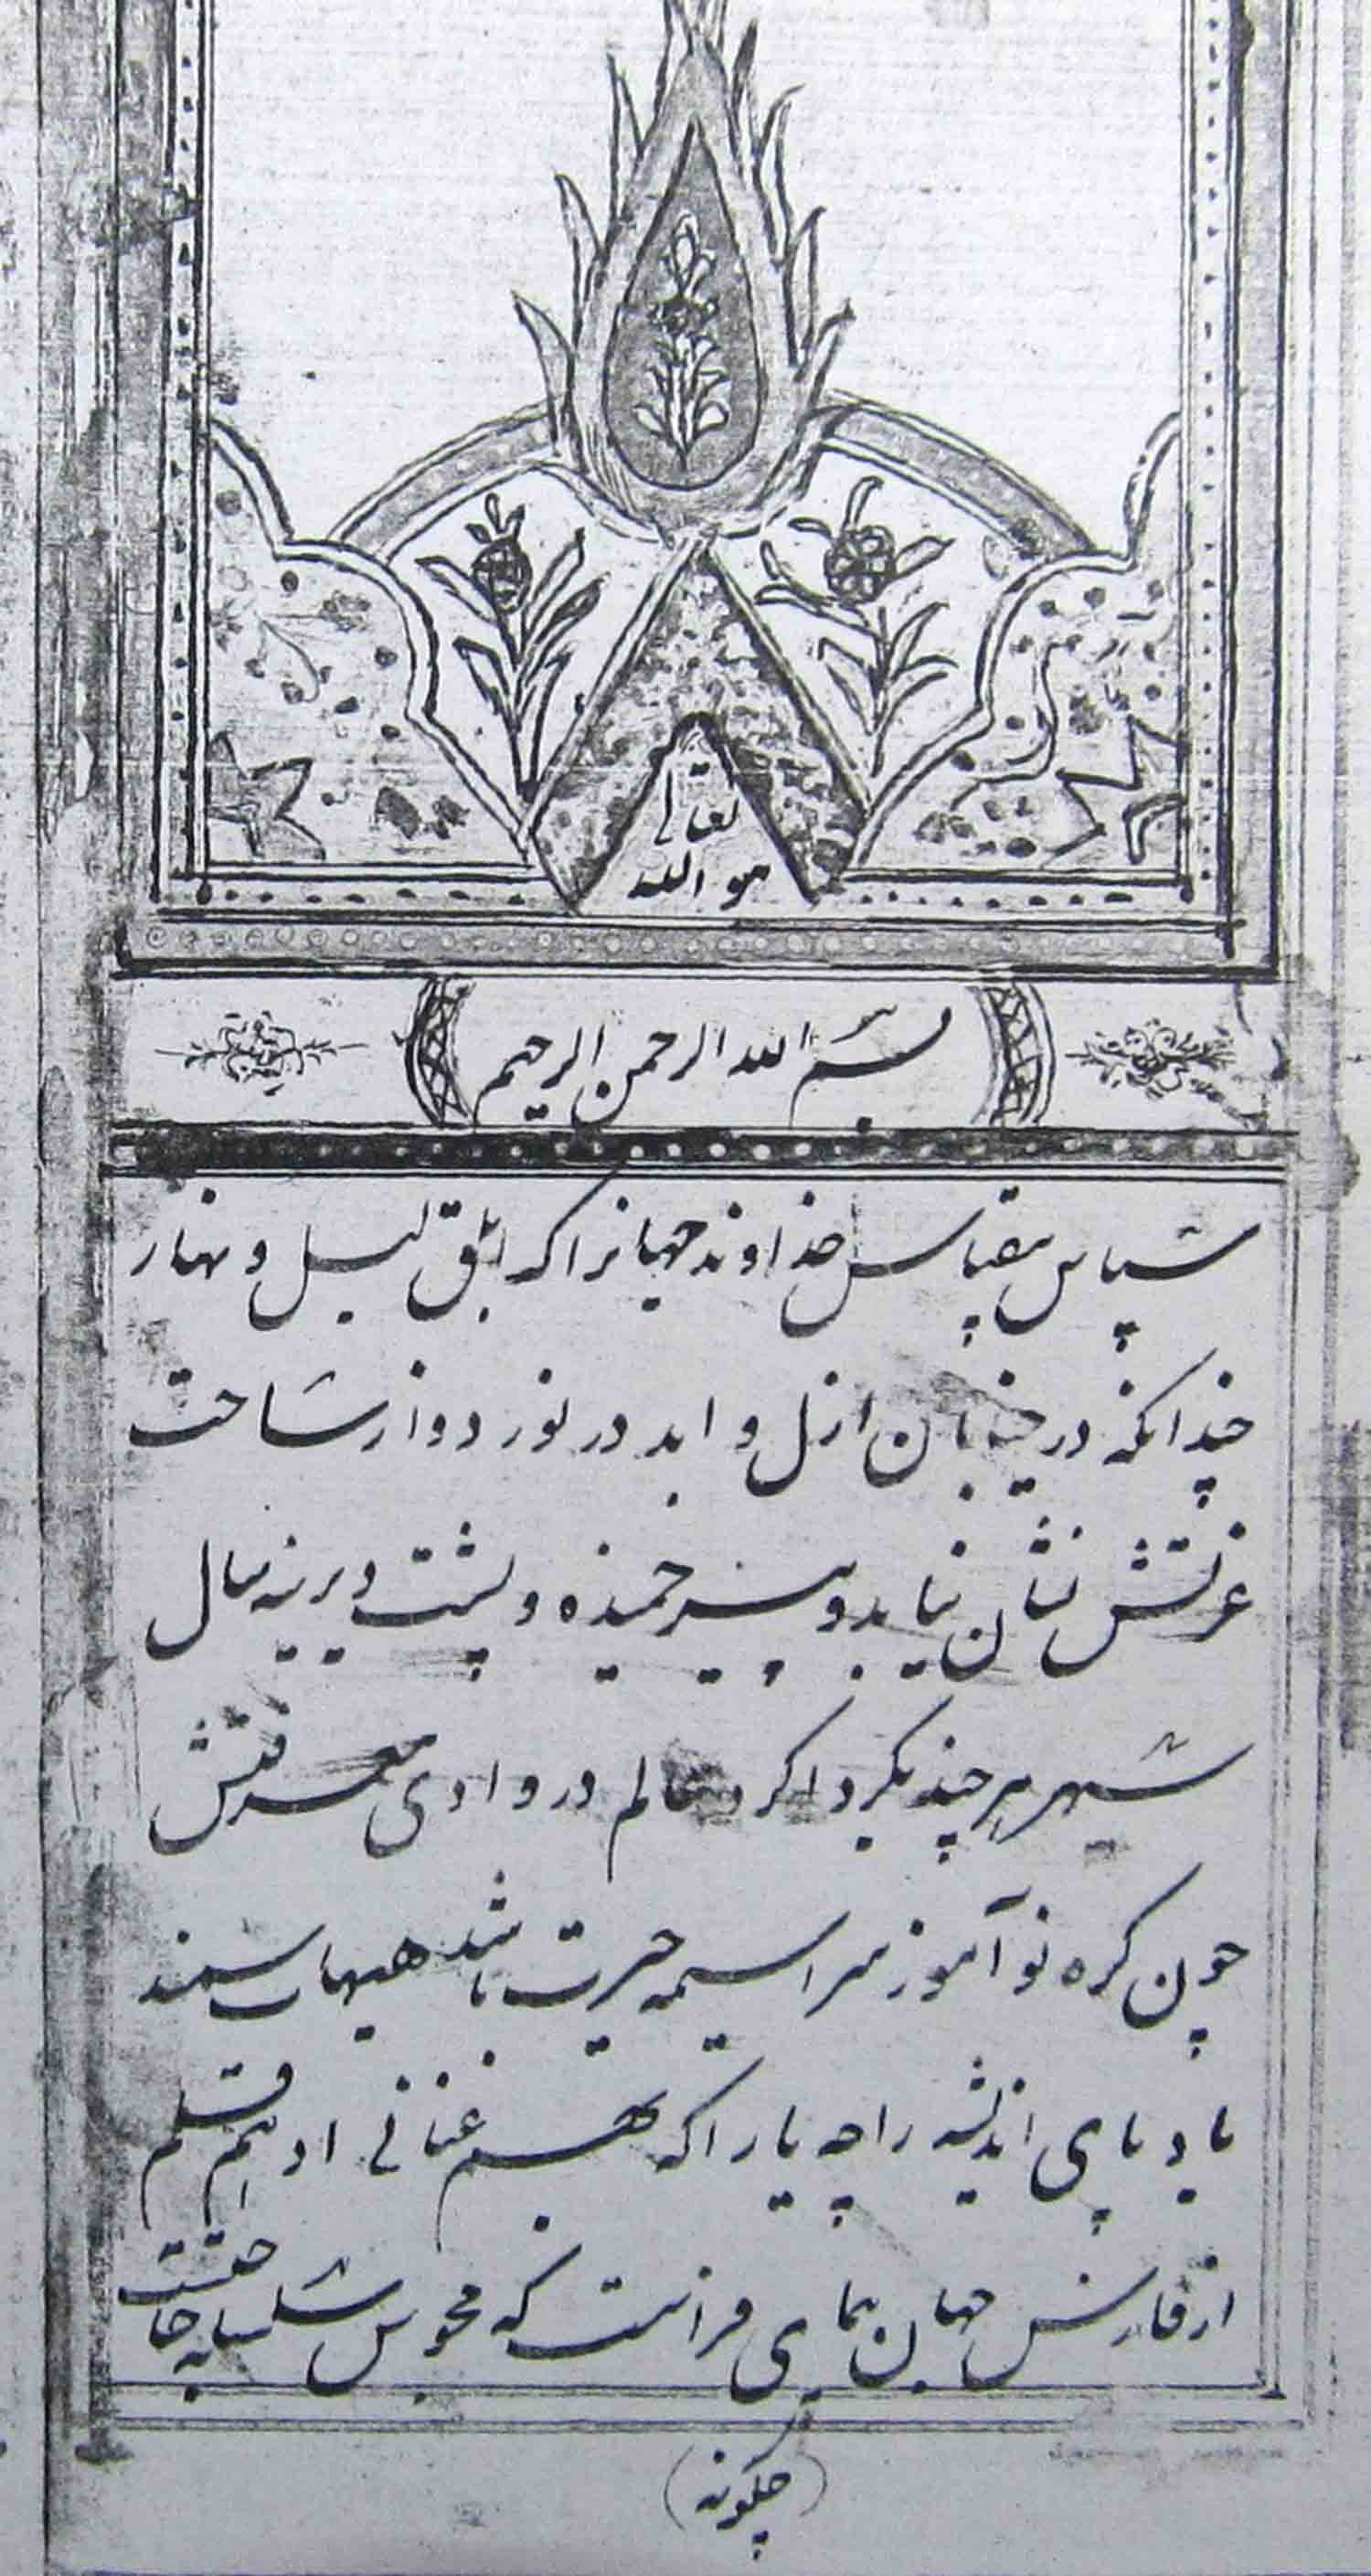 تعالی
هو الله
بسم الله الرحمن الرحیم
سپاس بیقیاس خداوند جهانرا که ابلق لیل و نهار
چندانکه در خیابان ازل و ابد در نوردد و از ساحت
عزتش نشان نیابد و پیر خمیده و پشت دیرینه سال
سپهر هر چند بگرد اگرد عالم در وادی معرفتش
چون کره نو آموز سراسیمه حیرت باشد هیهات سمند
بادپای اندیشه را چه یارا که هم عنانی ادهم قلم
از فارس جهان پیمای فراست که محبوس سلسله
(چگونه)